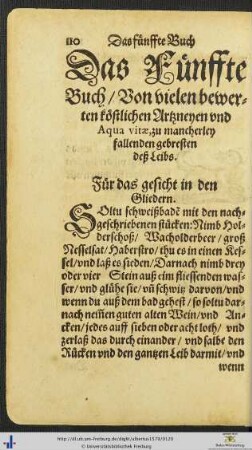 110 Das fünffte Buch
Das Fünffte
Buch / Von vielen bewer-
ten köstlichen Artzneyen vnd
Aqua vitæ, zu mancherley
fallenden gebresten
deß Leibs.
Für das gesicht in den
Gliedern.
SOltu schweißbadē mit den nach-
geschriebenen stücken: Nimb Hol-
derschoß / Wacholderbeer / groß
Nesselsat / Haberstro / thu es in einen Kes-
sel / vnd laß es sieden / Darnach nimb drey
oder vier Stein auß eim fliessenden was-
ser / vnd glühe sie / vñ schwitz darvon / vnd
wenn du auß dem bad gehest / so soltu dar-
nach nemen guten alten Wein / vnd An-
cken / jedes auff sieben oder acht loth / vnd
zerlaß das durch einander / vnd salbe den
Rücken vnd den gantzen Leib darmit / vnd
wenn
http://dl.ub.uni-freiburg.de/diglit/albertus1578/0120
© Universitätsbibliothek Freiburg